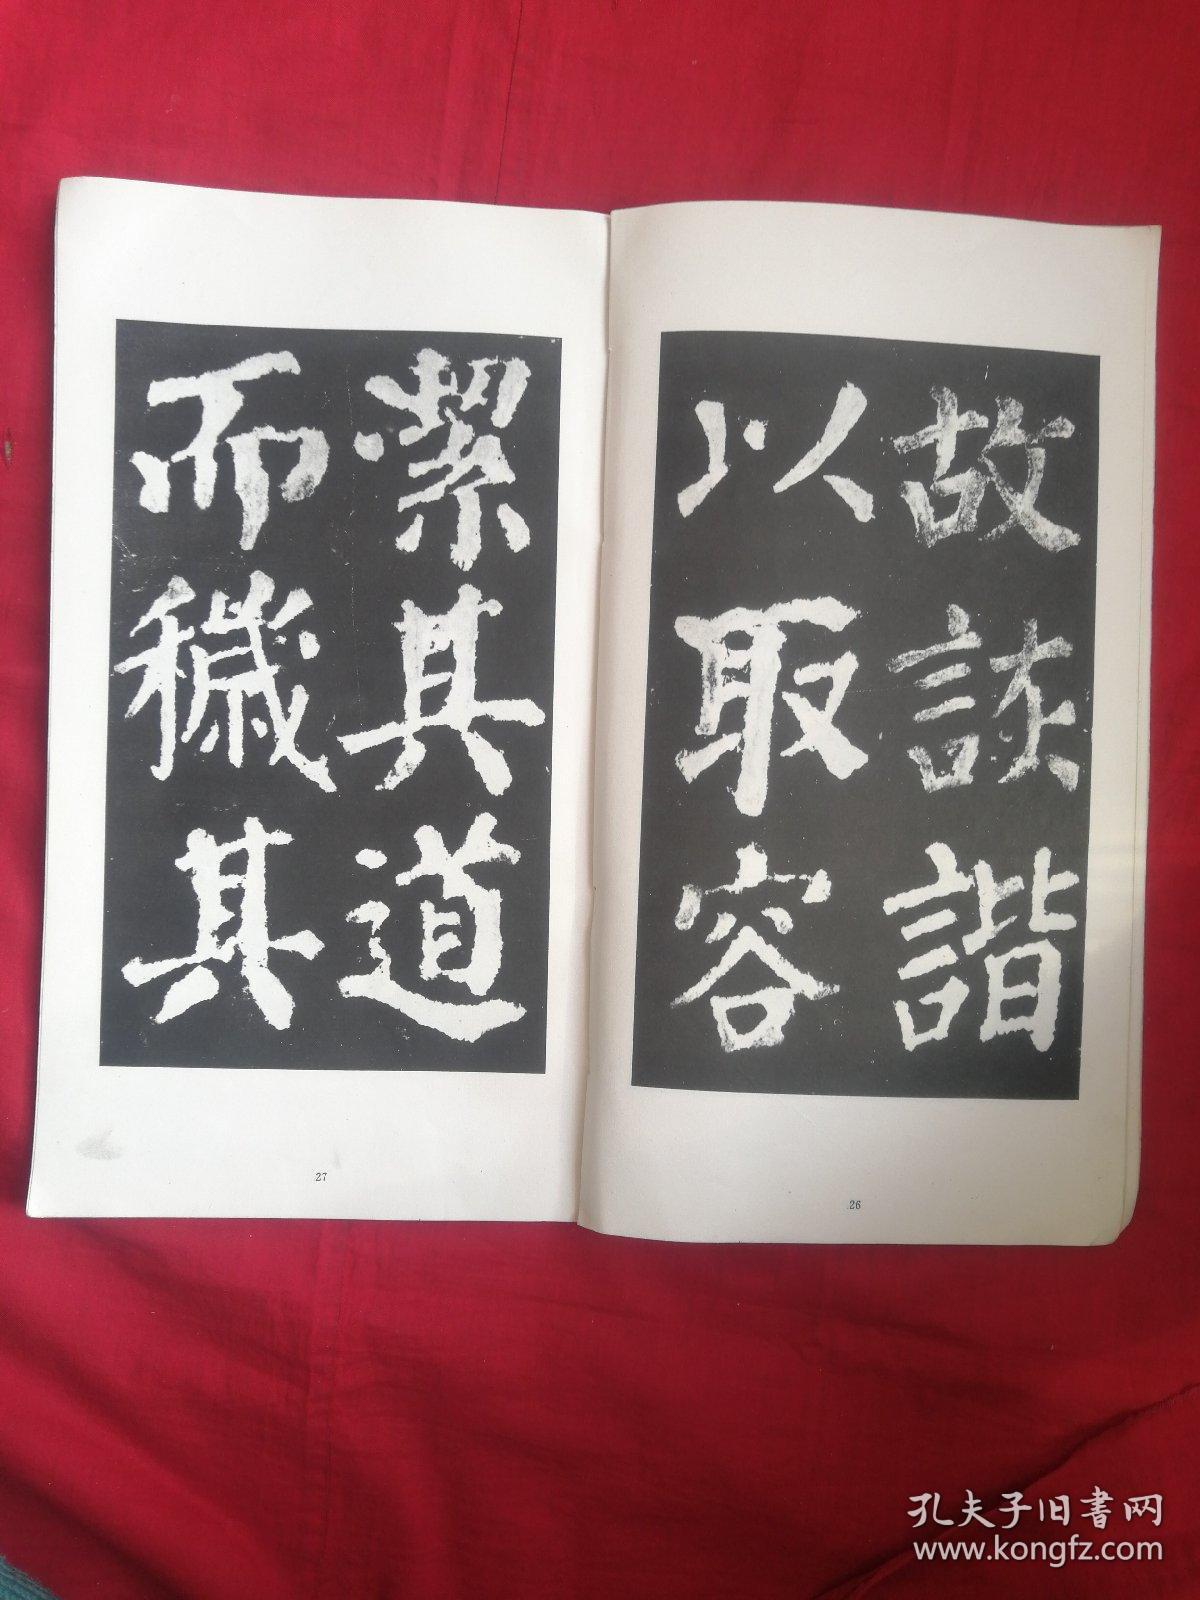 故詼諧
以取容
絜其道
而穢其
26
27
孔夫子旧書网
www.kongfz.com